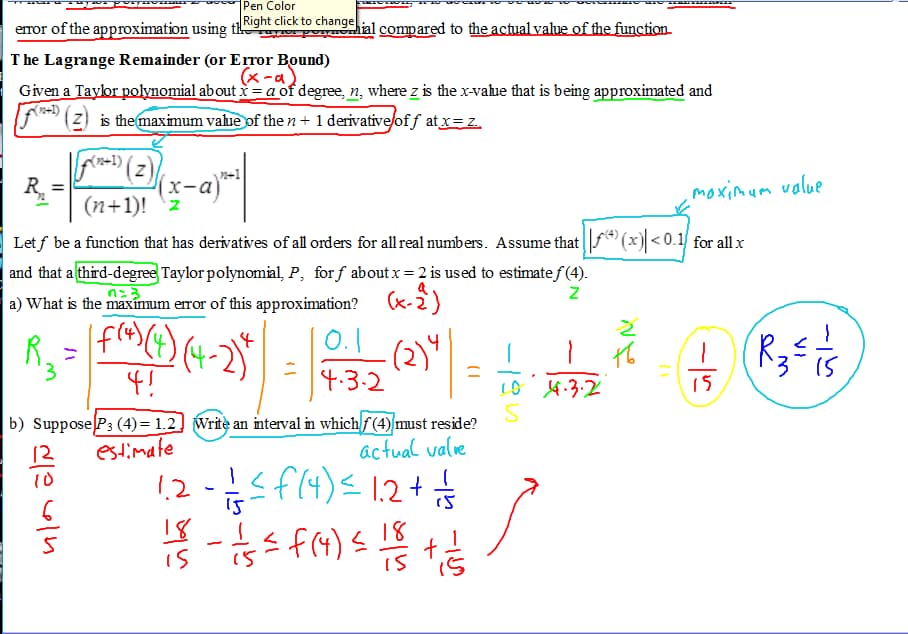 Pen Color
Right click to change
error of the approximation using the Taylor polynomial compared to the actual value of the function.
The Lagrange Remainder (or Error Bound)
(x-a)
Given a Taylor polynomial about x = a of degree, n, where z is the x-value that is being approximated and
f^(n+1) (z) is the maximum value of the n + 1 derivative of f at x = z.
R_n = |f^(n+1)(z)/(n+1)! (x-a)^n+1|
z
maximum value
Let f be a function that has derivatives of all orders for all real numbers. Assume that |f^(4)(x)| < 0.1 for all x
and that a third-degree Taylor polynomial, P, for f about x = 2 is used to estimate f (4).
n=3
a
z
a) What is the maximum error of this approximation? (x-2)
R_3 = |f^(4)(4)/4! (4-2)^4| = |0.1/4·3·2 (2)^4| = 1/10 · 1/4·3·2 16 = 1/15
2
5
R_3 ≤ 1/15
b) Suppose P_3 (4) = 1.2. Write an interval in which f (4) must reside?
estimate
actual value
12/10
6/5
1.2 - 1/15 ≤ f(4) ≤ 1.2 + 1/15
18/15 - 1/15 ≤ f(4) ≤ 18/15 + 1/15